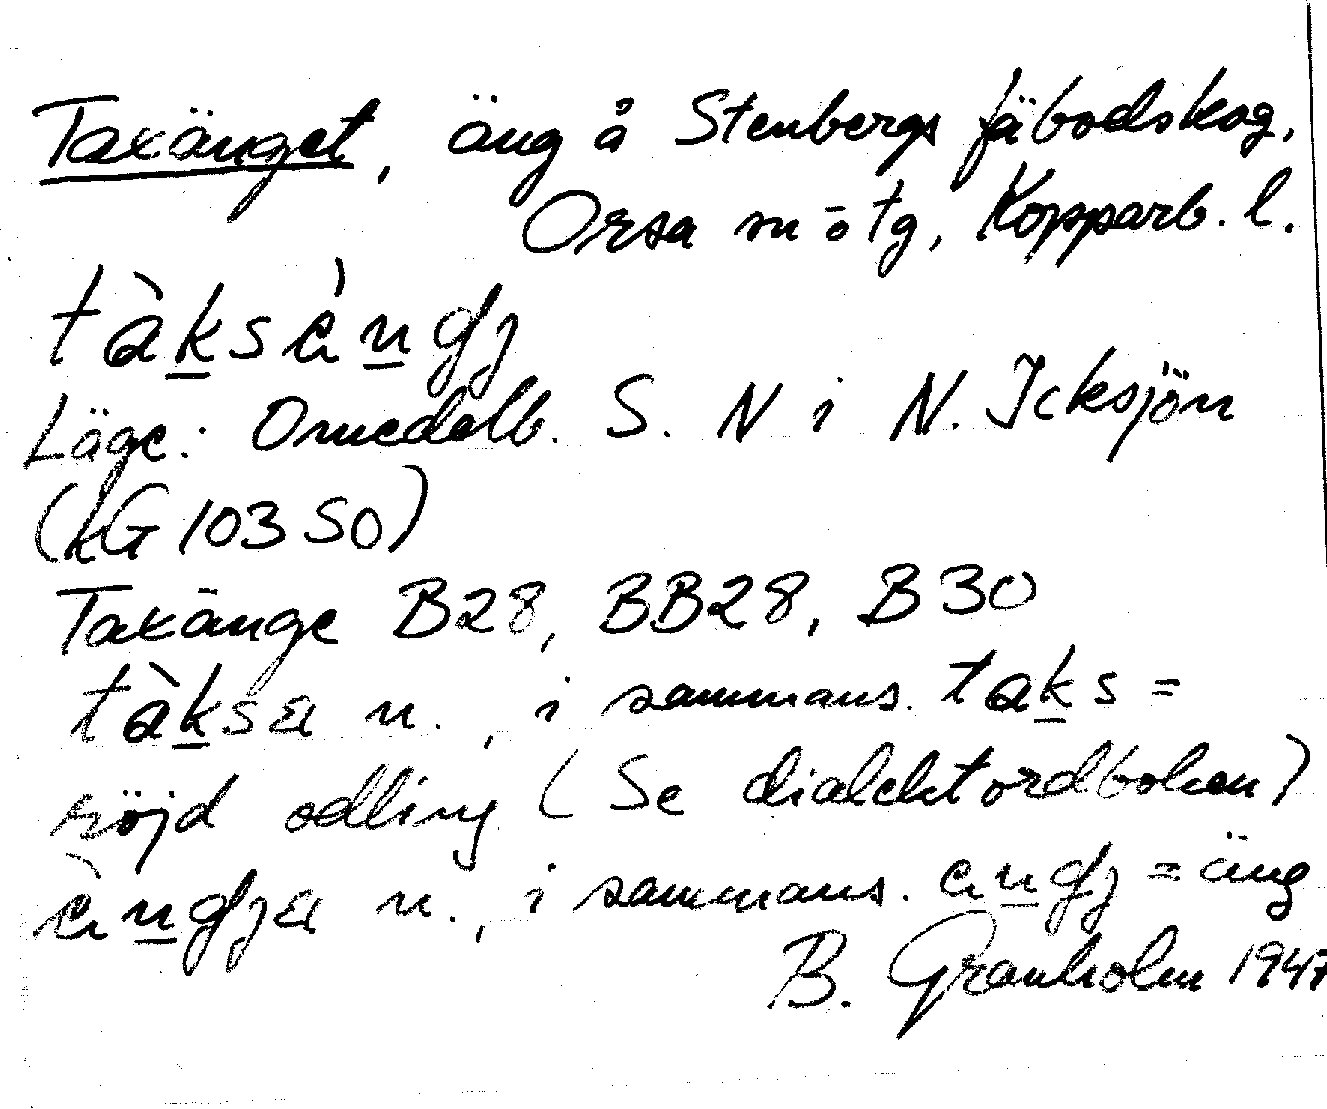 Taxänget, äng å Stenbergs fäbodskog,
Orsa sn ō tg, Kopparb. l.
tàksèngj
Läge: Omedelb. S. N i N. Icksjön
(kG 103 SO)
Taxänge B28, BB28, B30
tàksa n., i sammans. taks =
röjd odling (Se dialektordboken)
èngja n., i sammans. engj = äng
B. Granholm 1947